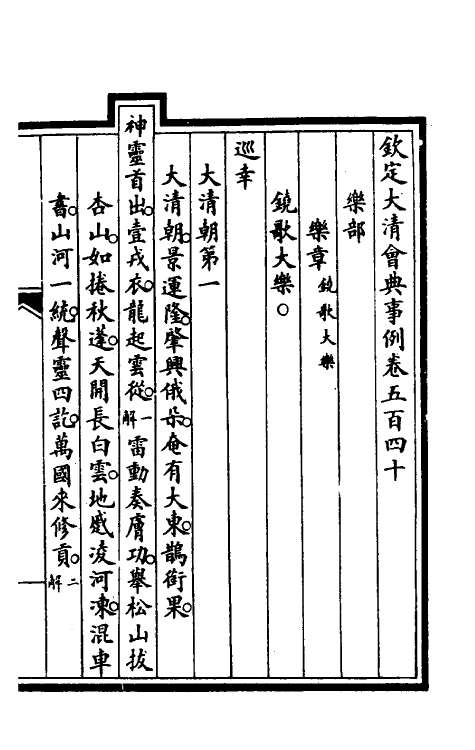 欽定大清會典事例卷五百四十
樂部
樂章鐃歌大樂
鐃歌大樂○
巡幸
大清朝第一
大清朝。景運隆。肇興俄朵。奄有大東。鵲銜果。
神靈首出。壹戎衣。龍起雲從。一解雷動奏膚功。舉松山拔
杏山。如捲秋蓬。天開長白雲。地蹙凌河凍。混車
書。山河一統。聲靈四訖。萬國來修貢。二解